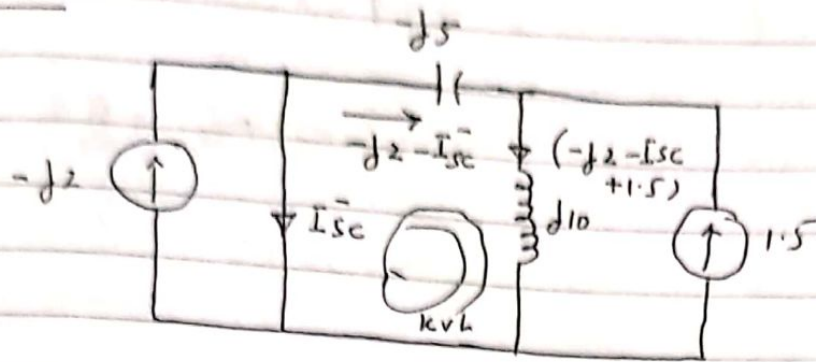 -j5
-j2 - Isc
(-j2 - Isc
+1.5)
-j2
Isc
j10
1.5
KVL